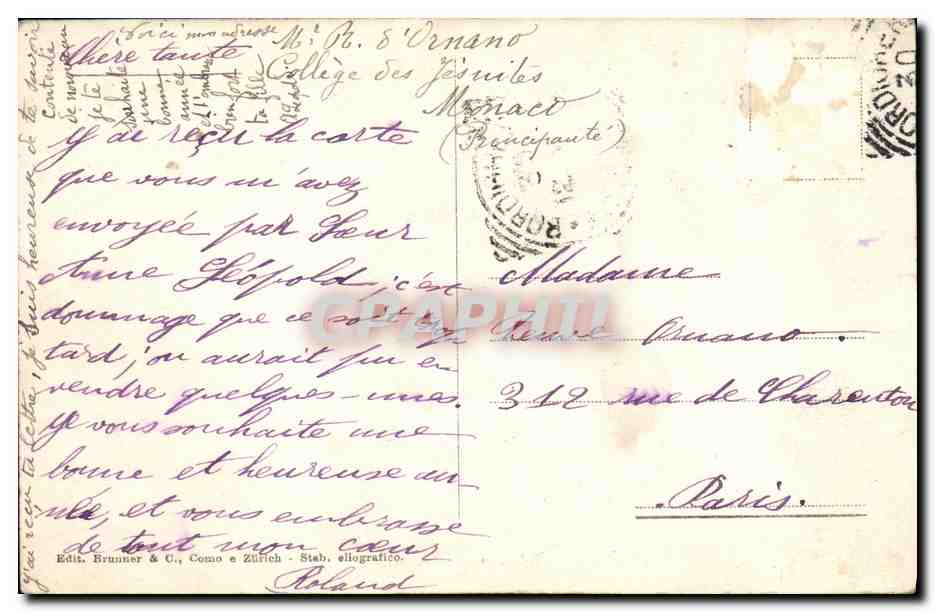 Voici mon adresse
Mr R. d'Ornano
Collège des Jésuites
Monaco
(Principauté)
Chère tante
J'ai reçu la carte
que vous m'avez
envoyée par Sœur
Anne Léopold ; c'est
dommage que ce soit trop
tard ; on aurait pu en
vendre quelques-unes.
Je vous souhaite une
bonne et heureuse an-
née, et vous embrasse
de tout mon cœur
Roland
J'ai reçu ta lettre, je suis heureuse de te savoir
contente
de nouveau
je te
souhaite
une
bonne
année
et t'embrasse
bien fort
ta fille
Madame
Renée Ornano.
312 rue de Charenton
Paris.
BORDIGHERA
BORDIGHERA
30
CPAPHIL
Edit. Brunner & C., Como e Zürich - Stab. eliografico.